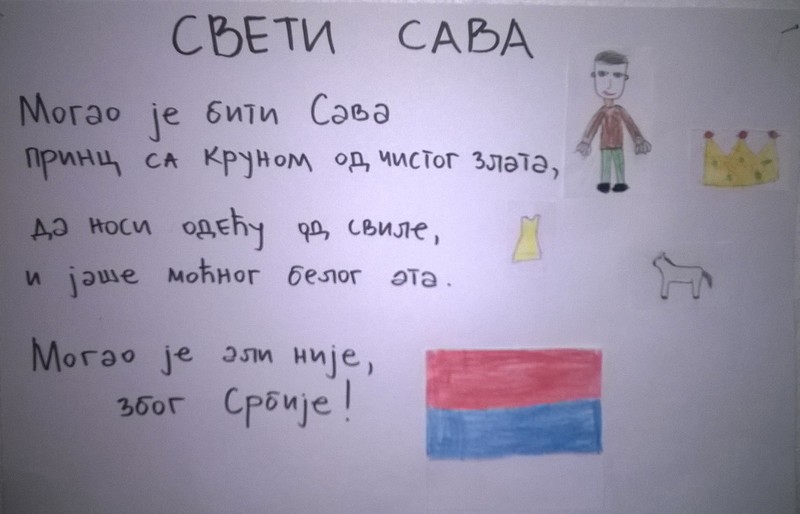 СВЕТИ САВА
Могао је бити Сава
принц са круном од чистог злата,
да носи одећу од свиле,
и јаше моћног белог ата.
Могао је али није,
због Србије!